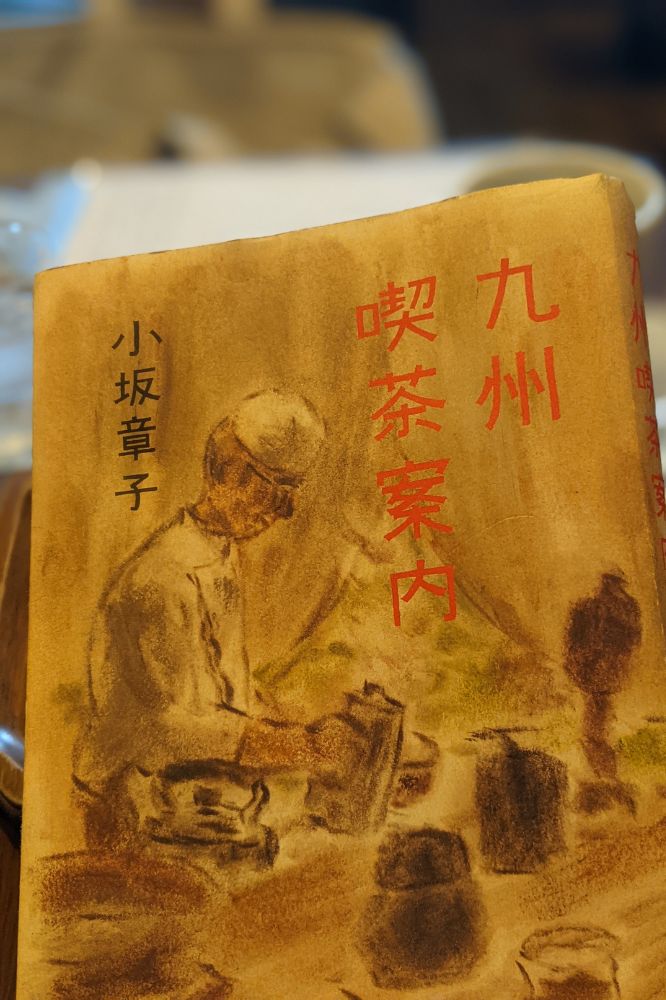 九州
喫茶案内
小坂章子
九州喫茶案内